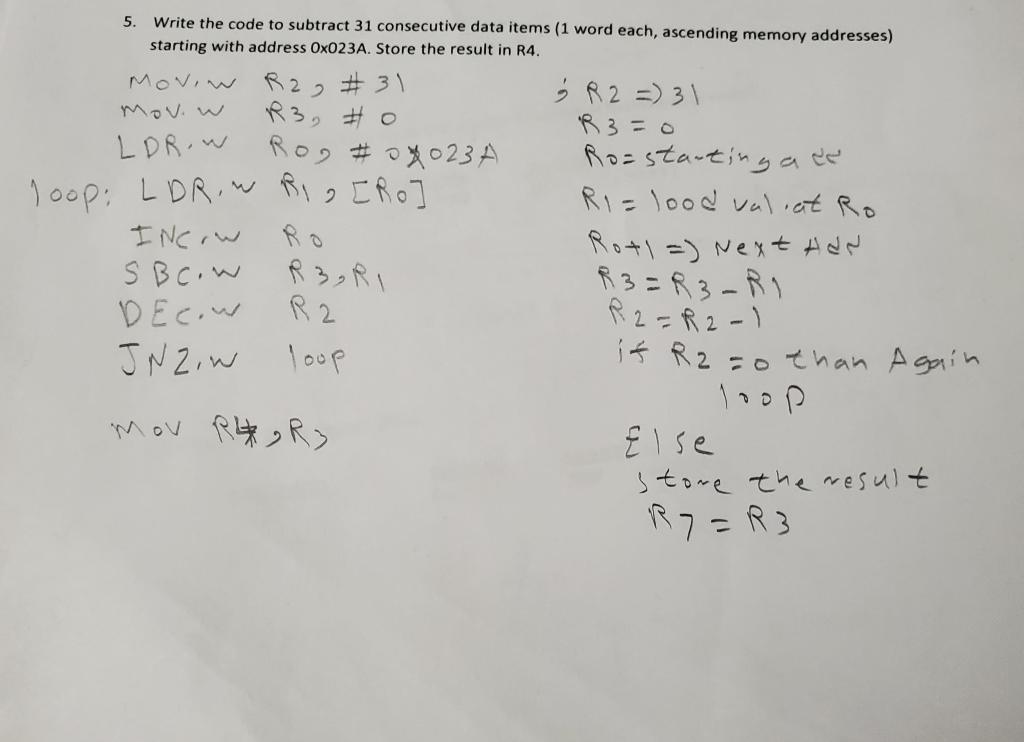 5. Write the code to subtract 31 consecutive data items (1 word each, ascending memory addresses)
starting with address 0x023A. Store the result in R4.
Mov.w R2, #31 ; R2 => 31
Mov.w R3, #0 R3 = 0
LDR.w R0, #0x023A R0 = starting add
loop: LDR.w R1, [R0] R1 = lood val.at R0
INC.w R0 R0+1 => Next Add
SBC.w R3,R1 R3 = R3 - R1
DEC.w R2 R2 = R2 - 1
JNZ.w loop if R2 = 0 than Again
loop
Mov R4, R3 Else
store the result
R7 = R3